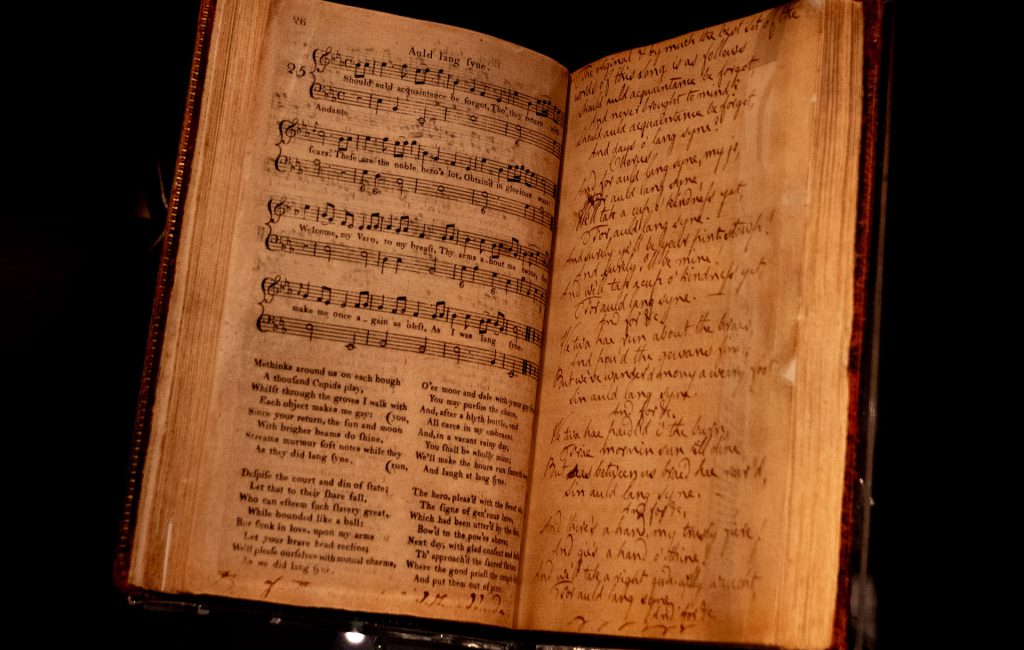 26
Auld lang ſyne.
25
Should auld acquaintance be forgot, Tho' they return with
Andante
ſcars? Theſe are the noble hero's lot, Obtain'd in glorious wars:
Welcome, my Varo, to my breaſt, Thy arms a-bout me twine, And
make me once a-gain as bleſt, As I was lang ſyne.
Methinks around us on each bough
A thouſand Cupids play,
Whilſt through the groves I walk with
Each object makes me gay: (you,
Since your return, the ſun and moon
With brigher beams do ſhine,
Streams murmur ſoft notes while they
As they did lang ſyne. (run,
Deſpiſe the court and din of ſtate;
Let that to their ſhare fall,
Who can eſteem ſuch ſlavery great,
While bounded like a ball:
But ſunk in love, upon my arms
Let your brave head recline;
We'll pleaſe ourſelves with mutual charms,
As we did lang ſyne.
O'er moor and dale with your gay
You may purſue the chace,
And, after a blyth bottle, end
All cares in my embrace:
And, in a vacant rainy day,
You ſhall be wholly mine;
We'll make the hours run ſmooth
And laugh at lang ſyne.
The hero, pleas'd with the ſweet
The ſigns of gen'rous love,
Which had been utter'd by the
Bow'd to the pow'rs above;
Next day, with glad conſent and
Th' approach'd the ſacred
Where the good prieſt the couple
And put them out of pine.
The original & by much the best set of the
words of this song is as follows
Should auld acquaintance be forgot
And never brought to mind?
Should auld acquaintance be forgot,
And days o' lang syne?
Chorus
And for auld lang syne, my jo,
For auld lang syne,
We'll tak a cup o' kindness yet
For auld lang syne.
And surely ye'll be your pint-stoup!
And surely I'll be mine!
And we'll tak a cup o' kindness yet
For auld lang syne.
And for &c
We twa hae run about the braes,
And pou'd the gowans fine,
But we've wander'd mony a weary foot
Sin auld lang syne.
And for &c.
We twa hae paidl'd i' the burn,
Frae mornin sun till dine
But seas between us braid hae roar'd,
Sin auld lang syne.
And for &c.
And there's a hand, my trusty fiere!
And gies a hand o' thine!
And we'll tak a right gude-willy waught
For auld lang syne
And for &c